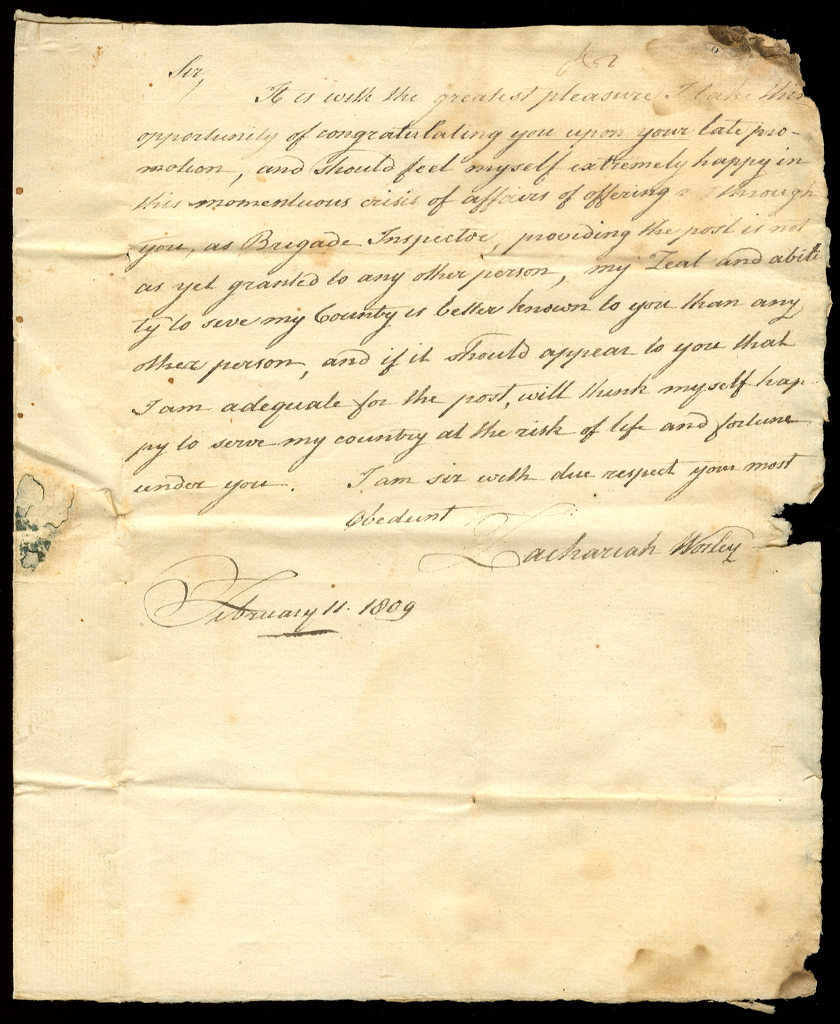 Sir,
It is with the greatest pleasure I take this
opportunity of congratulating you upon your late pro-
motion, and should feel myself extremely happy in
this momentuous crisis of affairs of offering through
you, as Brigade Inspector, providing the post is not
as yet granted to any other person, my Zeal and abili
ty to seve my County is better known to you than any
other person, and if it should appear to you that
I am adequate for the post, will think myself hap-
py to serve my country at the risk of life and fortune
under you. I am sir with due respect your most
Obedient
Zachariah Worley
February 11. 1809